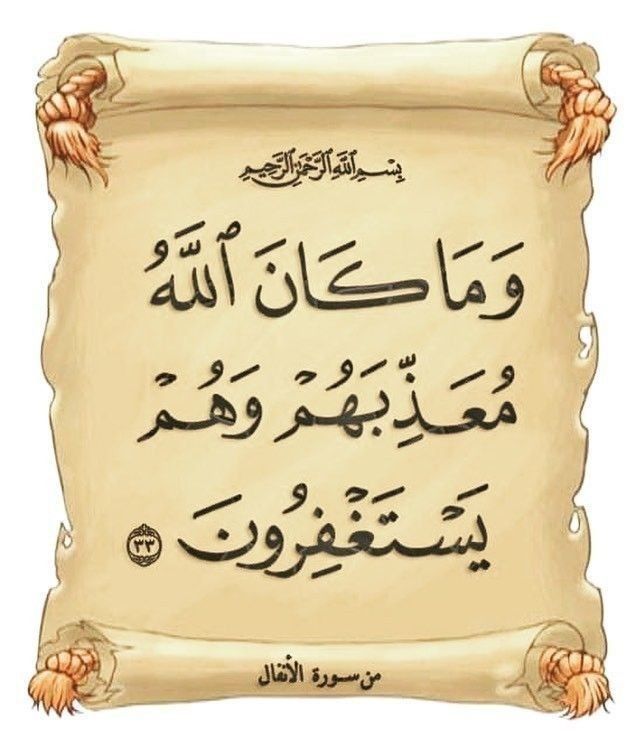 بِسْمِ ٱللَّهِ ٱلرَّحْمَٰنِ ٱلرَّحِيمِ
وَمَا كَانَ ٱللَّهُ
مُعَذِّبَهُمْ وَهُمْ
يَسْتَغْفِرُونَ ٣٣
من سورة الأنفال